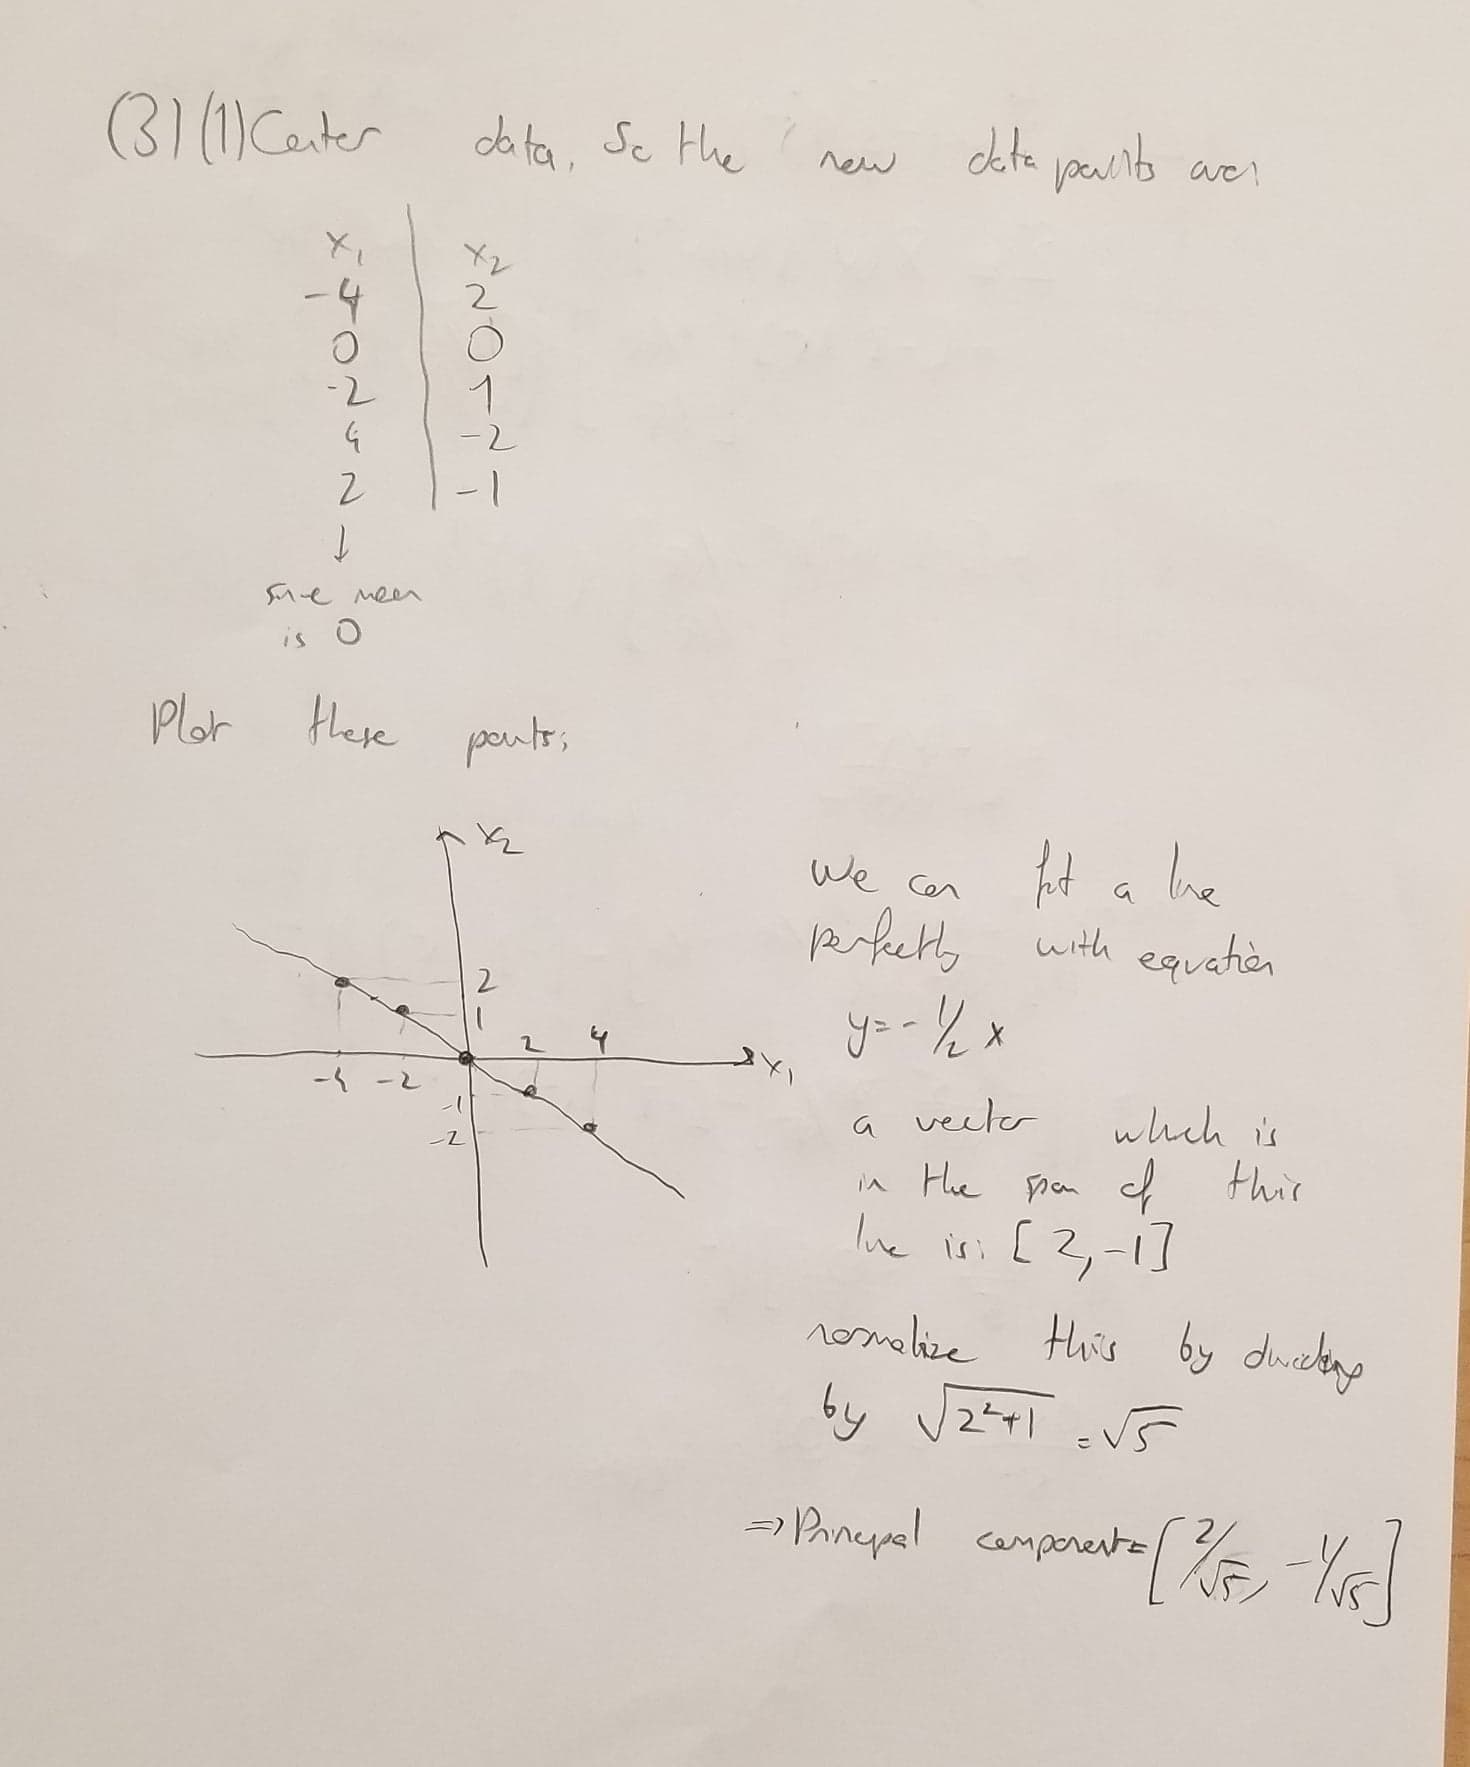 (3) (1) Center data, So the new data points are:
x₁ | x₂
-4 | 2
0 | 0
-2 | 1
4 | -2
2 | -1
↓
since mean
is 0
Plot these points:
x₂
2
1
2 4
x₁
-4 -2
-1
-2
We can fit a line
perfectly with equation
y=-1/2 x
a vector which is
in the span of this
line is: [2,-1]
normalize this by dividing
by √(2²+1) = √5
=> Principal component = [2/√5, -1/√5]